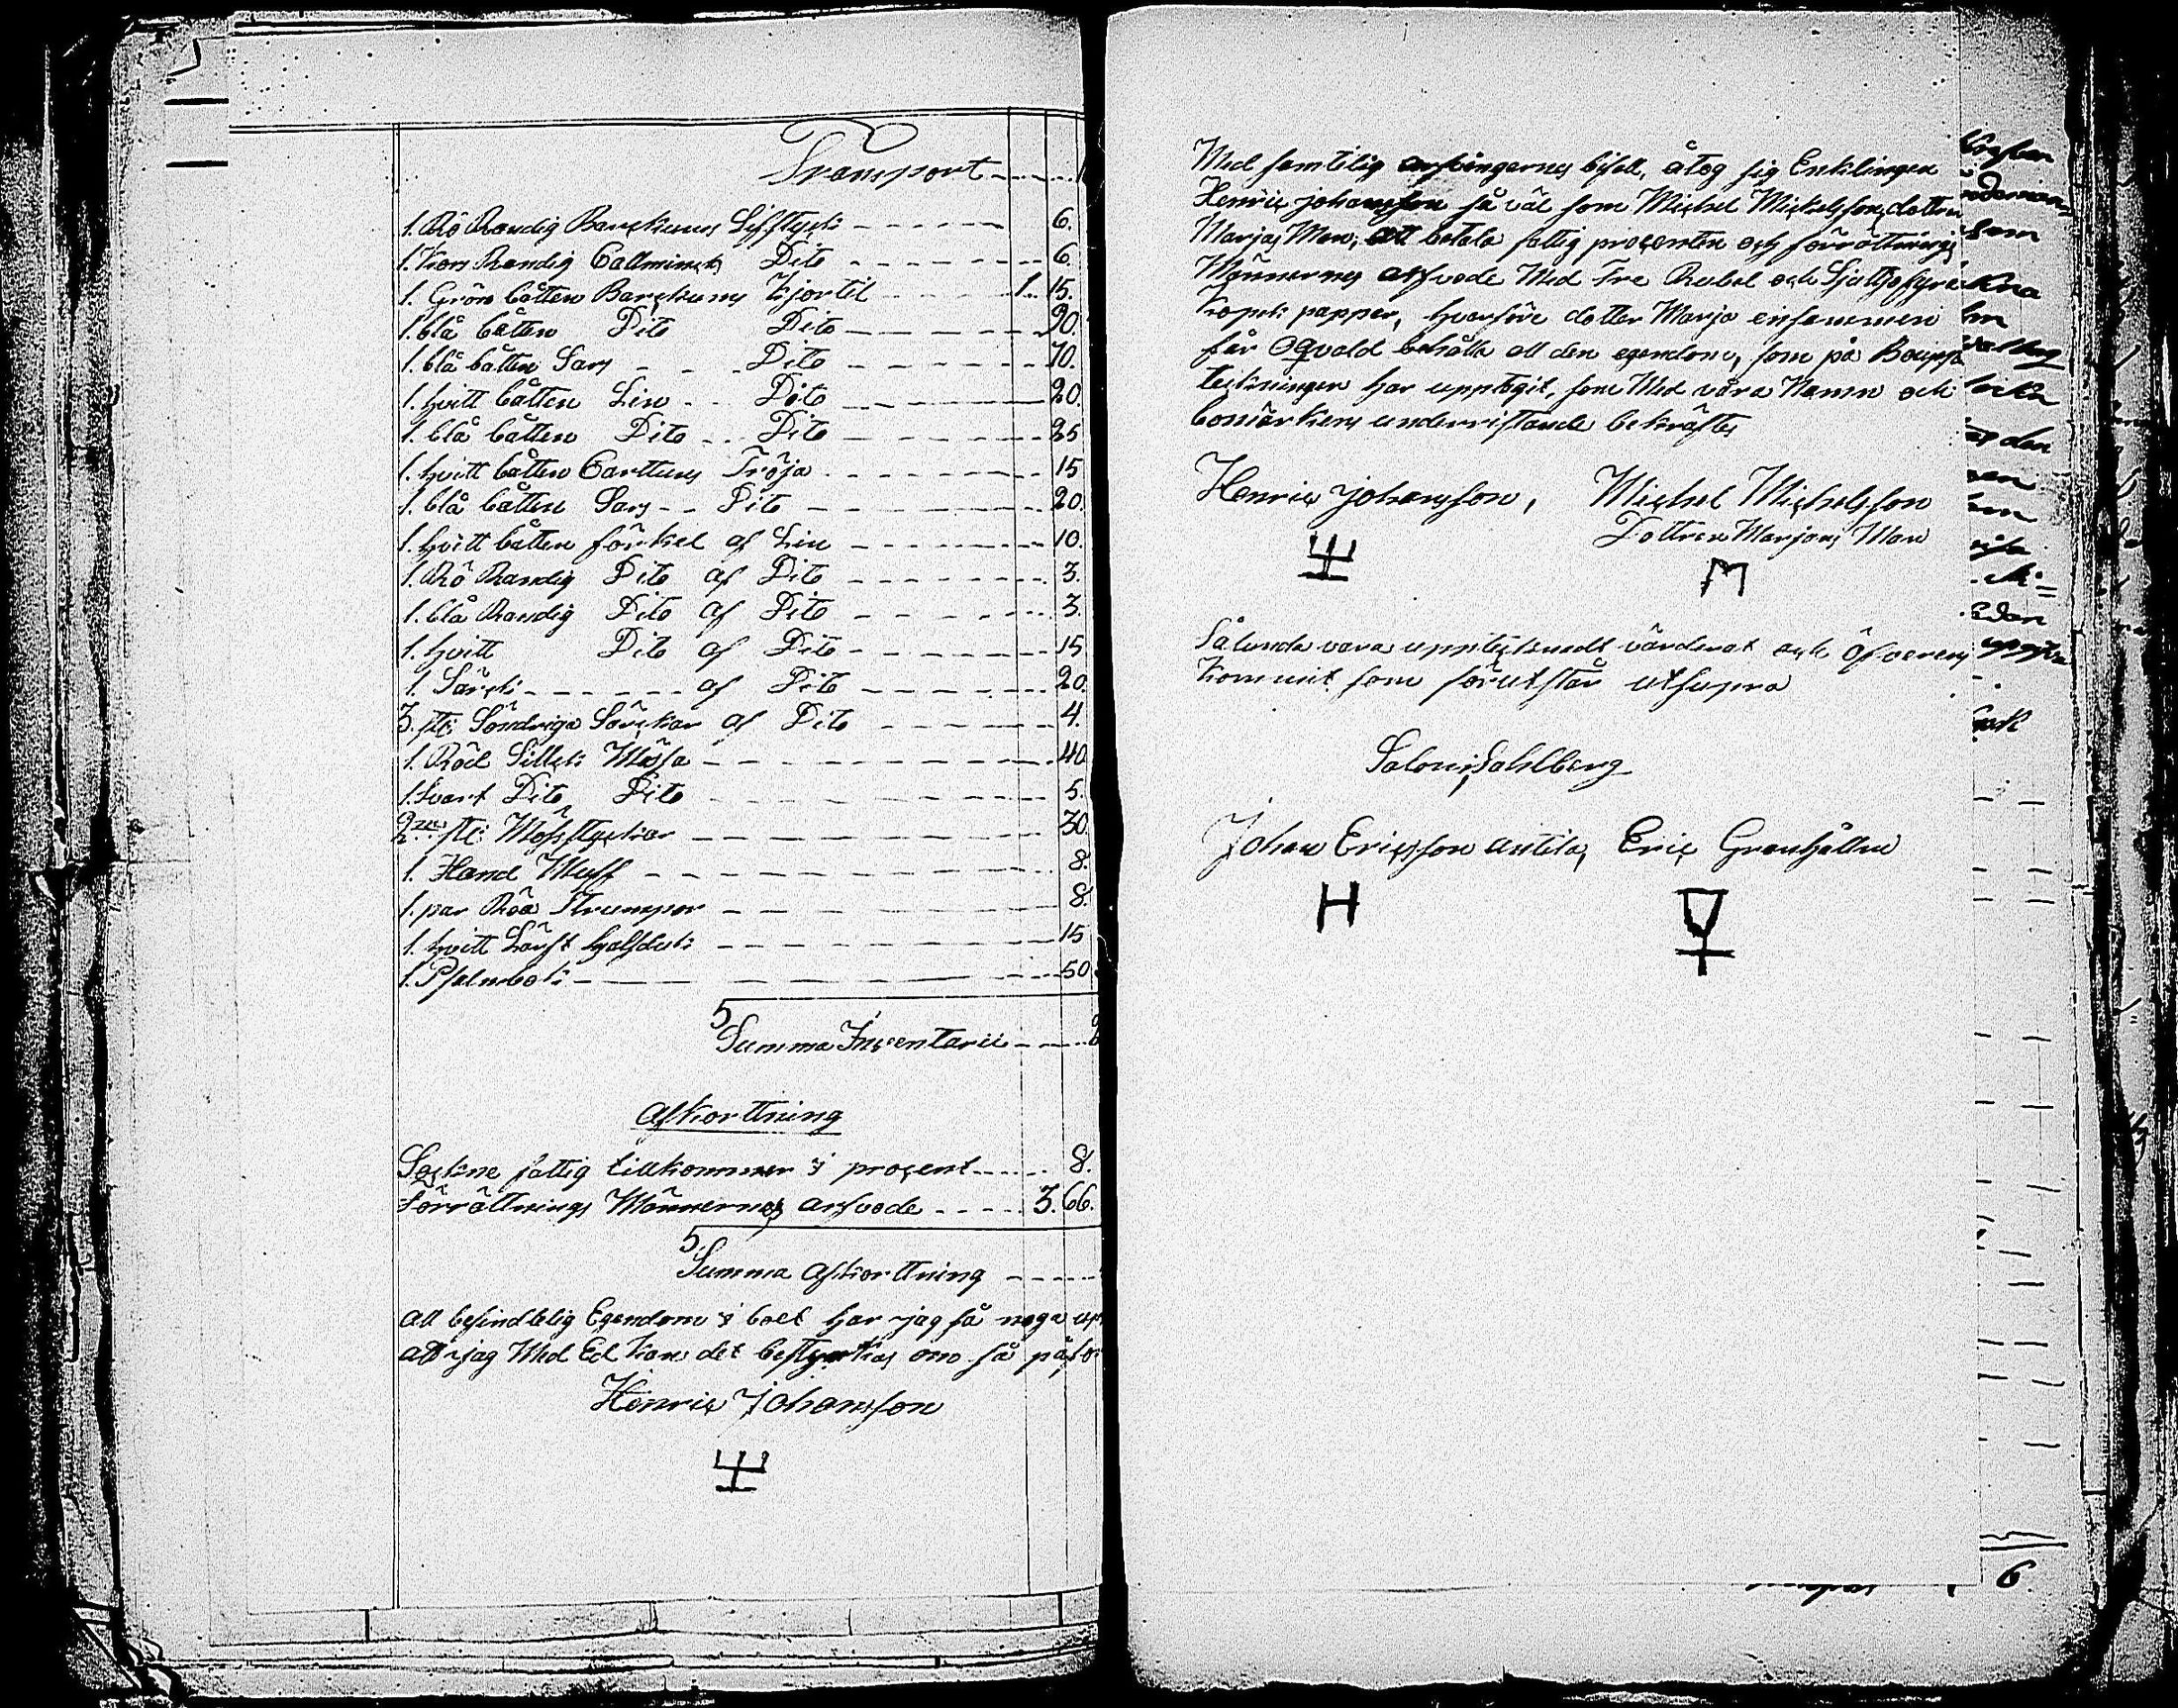 Transport
1. Rö Randig Barckuns Lifstyck 6.
1. Kors Randig Callminck Dito 6.
1. Grön båtten Barckuns Kjortil 1. 15.
1. blå båtten Dito Dito 90.
1. blå båtten Sarj Dito 70.
1. hvitt båtten Lin Dito 20.
1. blå båtten Dito Dito 25
1. hvitt båtten Carttuns Tröja 15
1. blå båtten Sarj Dito 20.
1. hvitt båtten förkel af Lin 10.
1. Rö Randig Dito af Dito 3.
1. blå Randig Dito af Dito 3.
1. hvitt Dito af Dito 15
1. Särck af Dito 20.
3. st: Söndriga Särckar af Dito 4.
1. Röd Sillck Mössa 40
1. Svart Dito Dito 5.
2 st: Mösstyckar 30
1. Hand Muff 8.
1. par Röa Strumpor 8.
1. hvitt Lärft halsduk 15
1. Psalmbok 50
Summa Inventarii
Afkorttning
Sockne fattig tillkommer i procent 8.
Förrättnings Männernes arfvode 3. 66.
Summa Afkorttning
All befindtelig Egendom i boet har jag så noga
att jag Med Ed kan det bestyrkas om så
Henric Johansson
Med samtelig arfvingarnes bifall, åtog sig Enklingen
Henric johansson så väl som Michel Michelsson dotter
Marjas Man, att betala fattig procenten och förrättnings
Männernes arfvode Med Tre Rubel och Sjuttjofyra
Kopek papper, hvarföre dotter Marja ensammen
får Oqvald behålla all den egendom, som på Boupp
teckningen har upptagit, som Med våra Namn och
bomärkens underristande bekräftes
Henric johansson, Michel Michelsson
Dottren Marjas Man
M
Sålunda vara uppteck​nadt värderat och Öfverens
Kommit som förutstår utsupra
Salom Sahlberg
Johan Ericsson Antila, Eric Granhållm
H
6